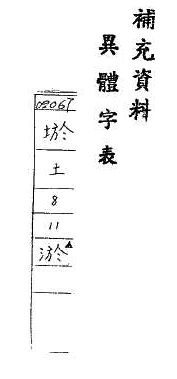 補充資料
異體字表
02067
土
8
11
淤▲